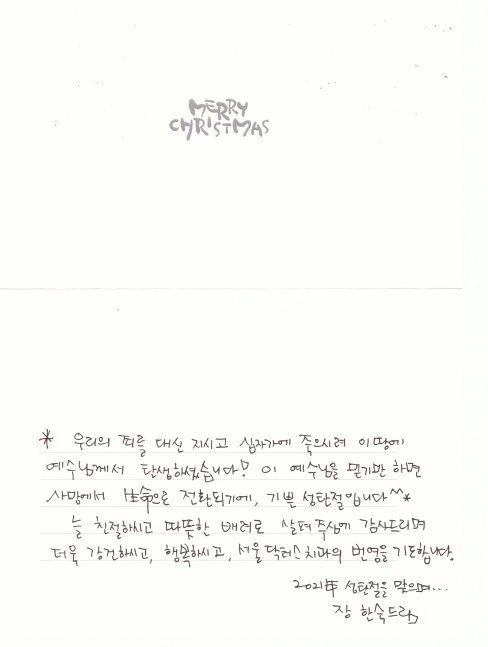 MERRY
CHRISTMAS
* 우리의 죄를 대신 지시고 십자가에 죽으시려 이땅에
예수님께서 탄생하셨습니다! 이 예수님을 믿기만 하면
사망에서 生命으로 전환되기에, 기쁜 성탄절입니다^^*
늘 친절하시고 따뜻한 배려로 살펴주심에 감사드리며
더욱 강건하시고, 행복하시고, 서울닥터스치과의 번영을 기도합니다.
2021年 성탄절을 맞으며...
장 한숙드림